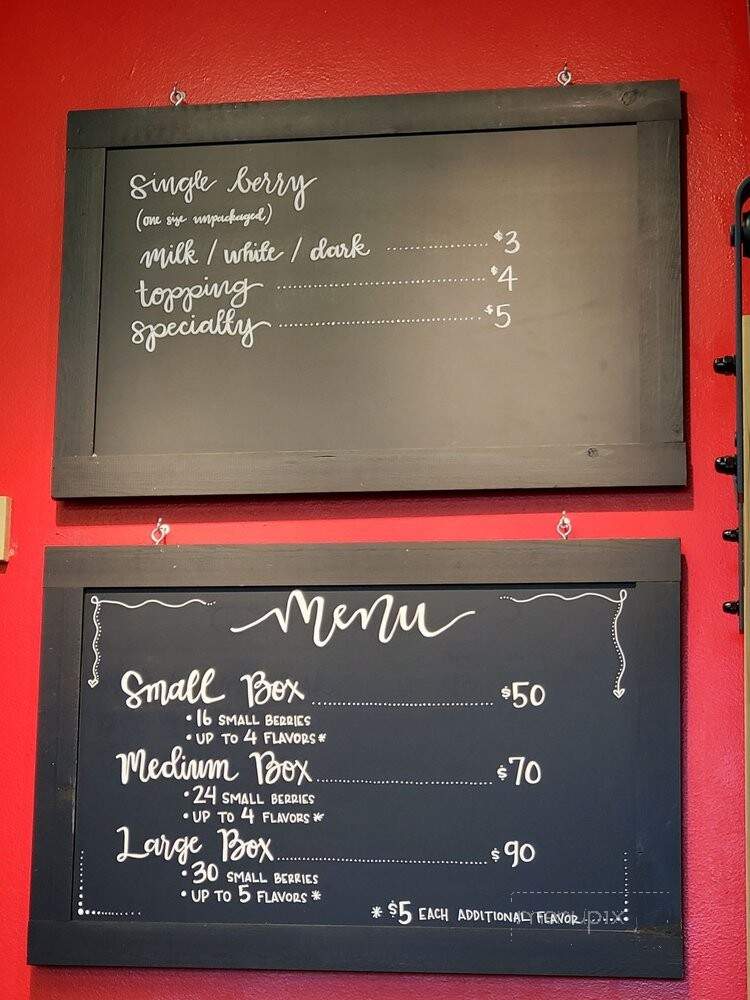 single berry
(one size unpackaged)
milk / white / dark ............... $3
topping ............................ $4
specialty ........................... $5
Menu
Small Box ........................... $50
• 16 SMALL BERRIES
• UP TO 4 FLAVORS*
Medium Box ........................... $70
• 24 SMALL BERRIES
• UP TO 4 FLAVORS*
Large Box ........................... $90
• 30 SMALL BERRIES
• UP TO 5 FLAVORS*
* $5 EACH ADDITIONAL FLAVOR
menupix